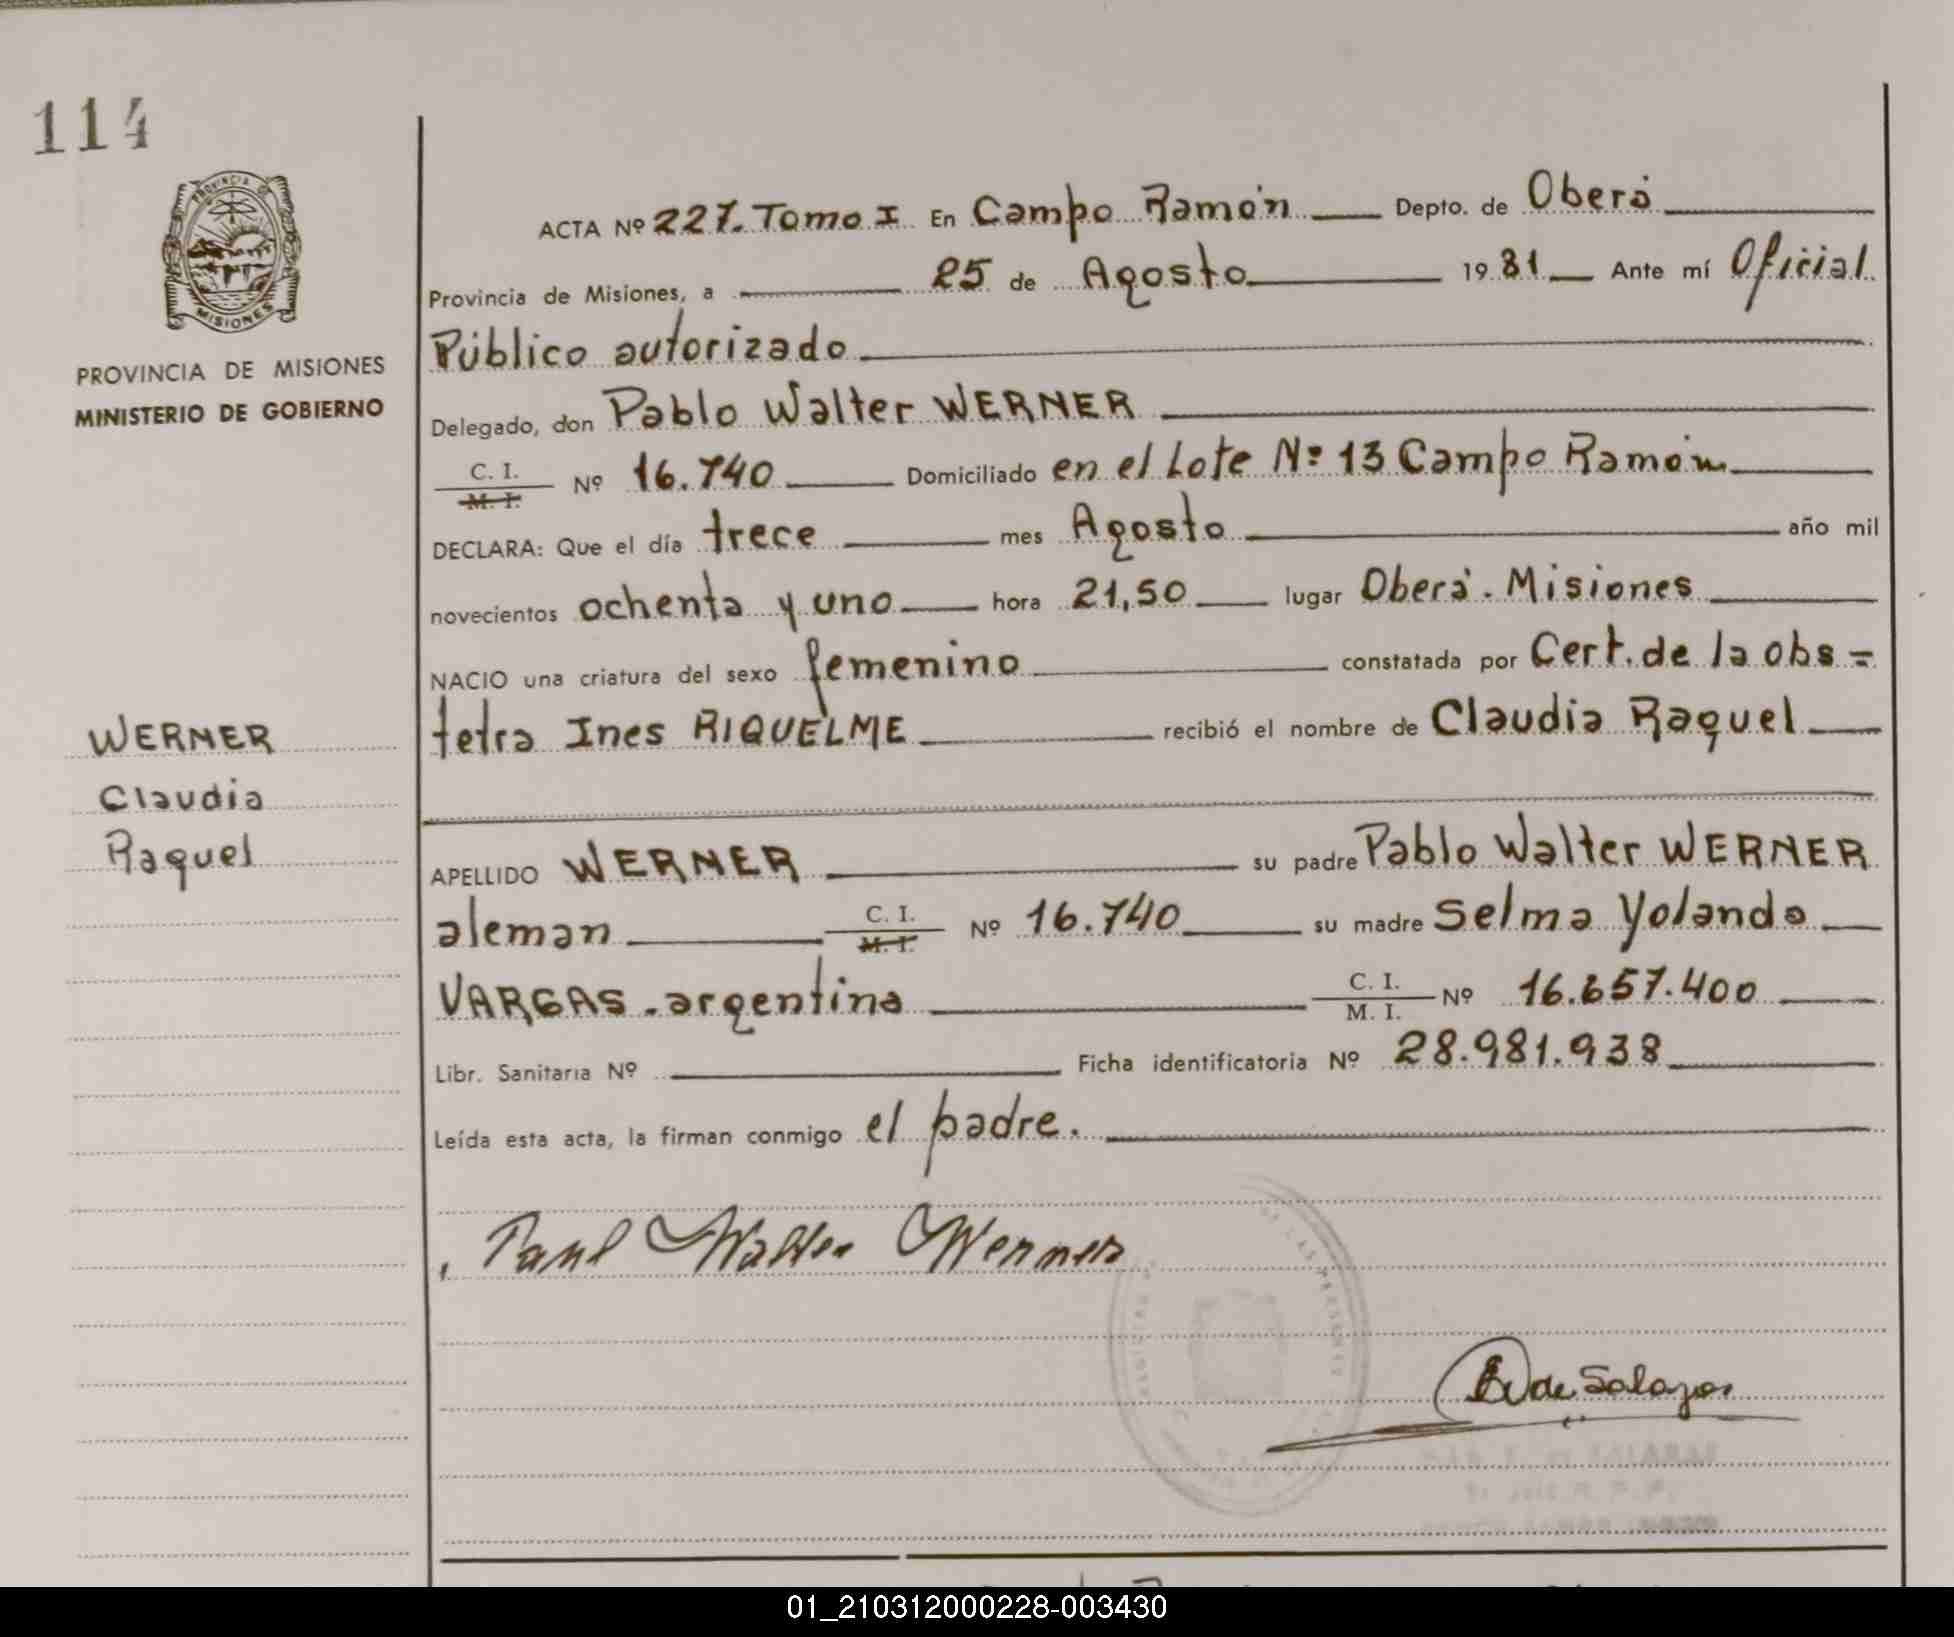 114
PROVINCIA DE
MISIONES
PROVINCIA DE MISIONES
MINISTERIO DE GOBIERNO
WERNER
Claudia
Raquel
ACTA Nº 227. Tomo I En Campo Ramón Depto. de Oberá
Provincia de Misiones, a 25 de Agosto 1981 Ante mí Oficial
Público autorizado
Delegado, don Pablo Walter WERNER
C. I. M. I. Nº 16.740 Domiciliado en el Lote Nº 13 Campo Ramón
DECLARA: Que el día trece mes Agosto año mil
novecientos ochenta y uno hora 21,50 lugar Oberá. Misiones
NACIO una criatura del sexo femenino constatada por Cert. de la obs=
tetra Ines RIQUELME recibió el nombre de Claudia Raquel
APELLIDO WERNER su padre Pablo Walter WERNER
aleman C. I. M. I. Nº 16.740 su madre Selma Yolanda
VARGAS. argentina C. I. M. I. Nº 16.657.400
Libr. Sanitaria Nº Ficha identificatoria Nº 28.981.938
Leída esta acta, la firman conmigo el padre.
Paul Walter Werner
de Salazar
01_210312000228-003430